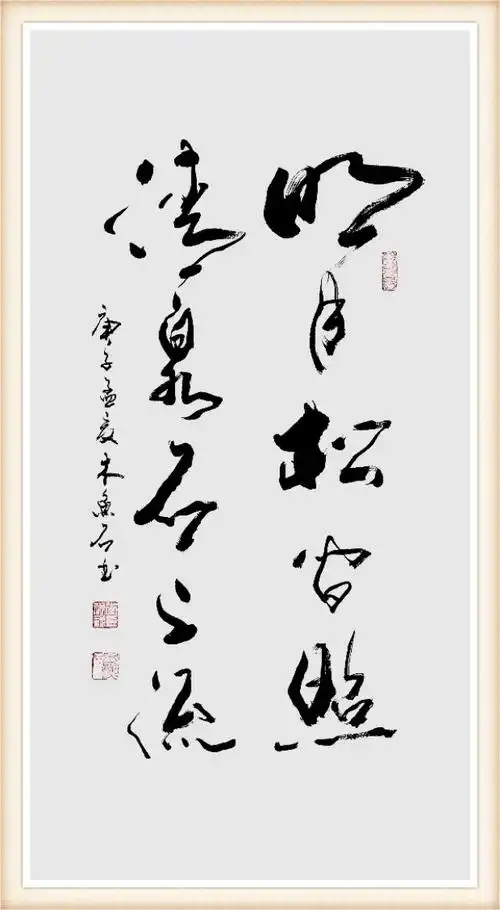 明月松间照
清泉石上流
庚子孟夏木鱼石书